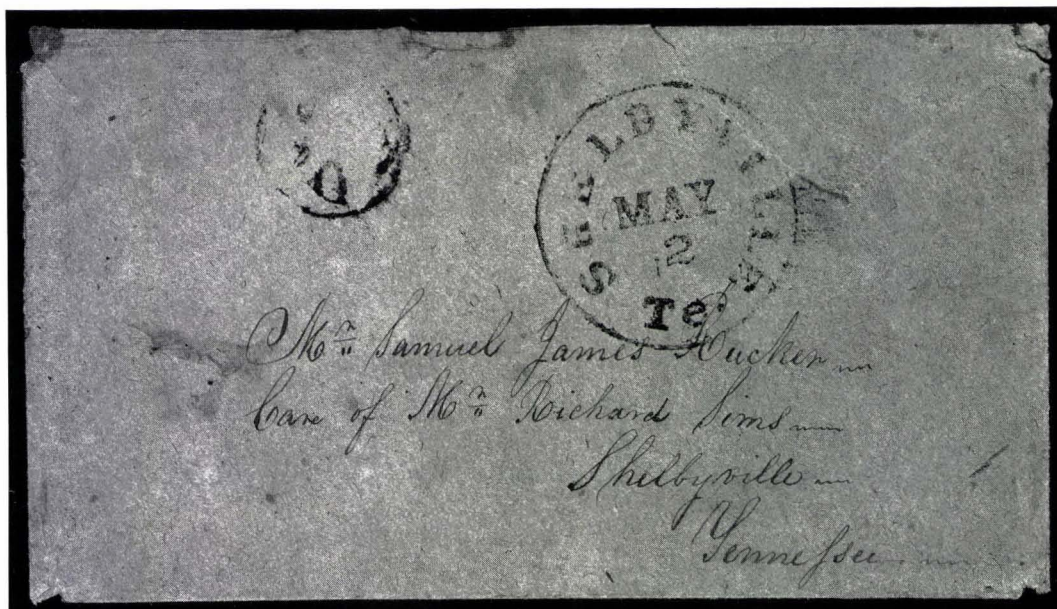 SHELBYVILLE
MAY
2
Te.
Mr. Samuel James Rucker
Care of Mr. Richard Sims
Shelbyville
Tenneſsee